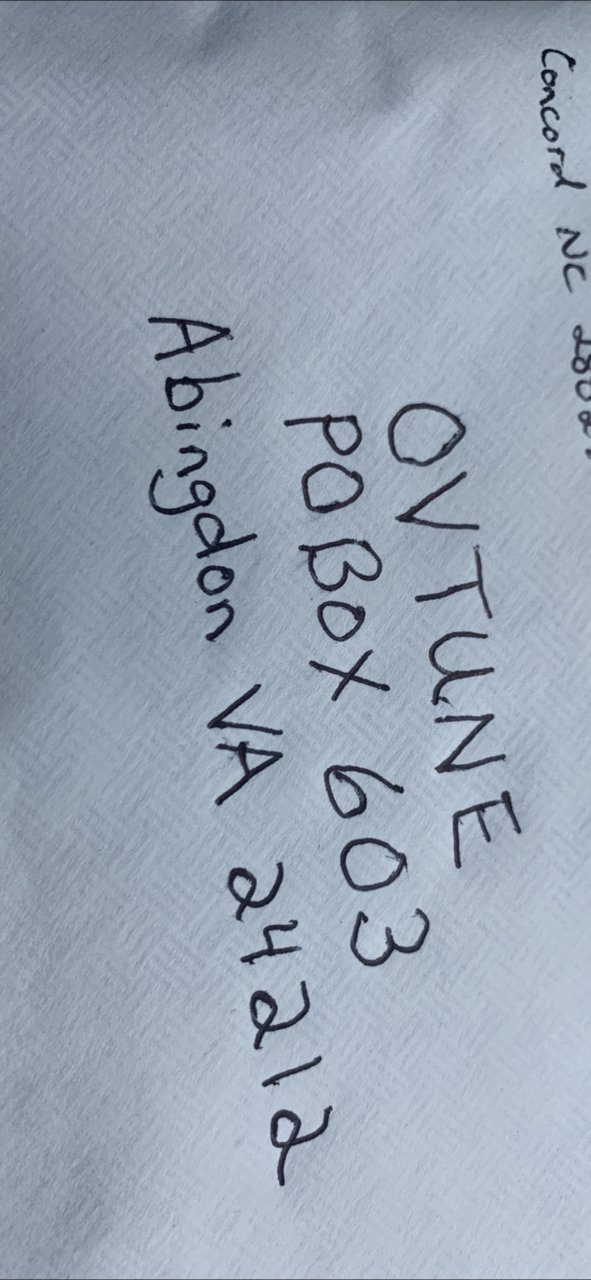 Concord NC
OVTUNE
PO BOX 603
Abingdon VA 24212